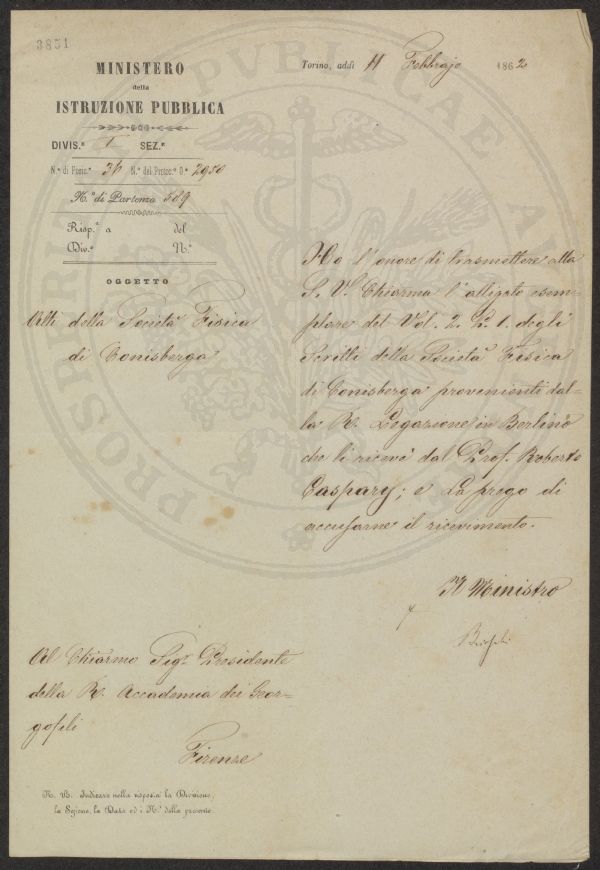 3851
MINISTERO
della
ISTRUZIONE PUBBLICA
Torino, addì 11 Febbrajo 1862
DIVIS.e I SEZ.e
N.o di Posiz.e 36 N.o del Protoc.o G.e 2950
N.o di Partenza 589
Risp.a a del
Div.e N.o
OGGETTO
Atti della Società Fisica
di Conisberga
Ho l'onore di trasmettere alla
S. V. Chiarma l'alligato esem=
plare del Vol. 2. P. 1. degli
Scritti della Società Fisica
di Conisberga provenienti dal=
la R. Legazione in Berlino
che li ricevè dal Prof. Roberto
Caspary; e La prego di
accusarne il ricevimento.
Il Ministro
Al Chiarmo Sigr. Presidente
della R. Accademia dei Geor=
gofili
Firenze
N. B. Indicare nella risposta la Divisione,
la Sezione, la Data ed i N.i della presente.
PROSPERITATI PVBLICAE AV